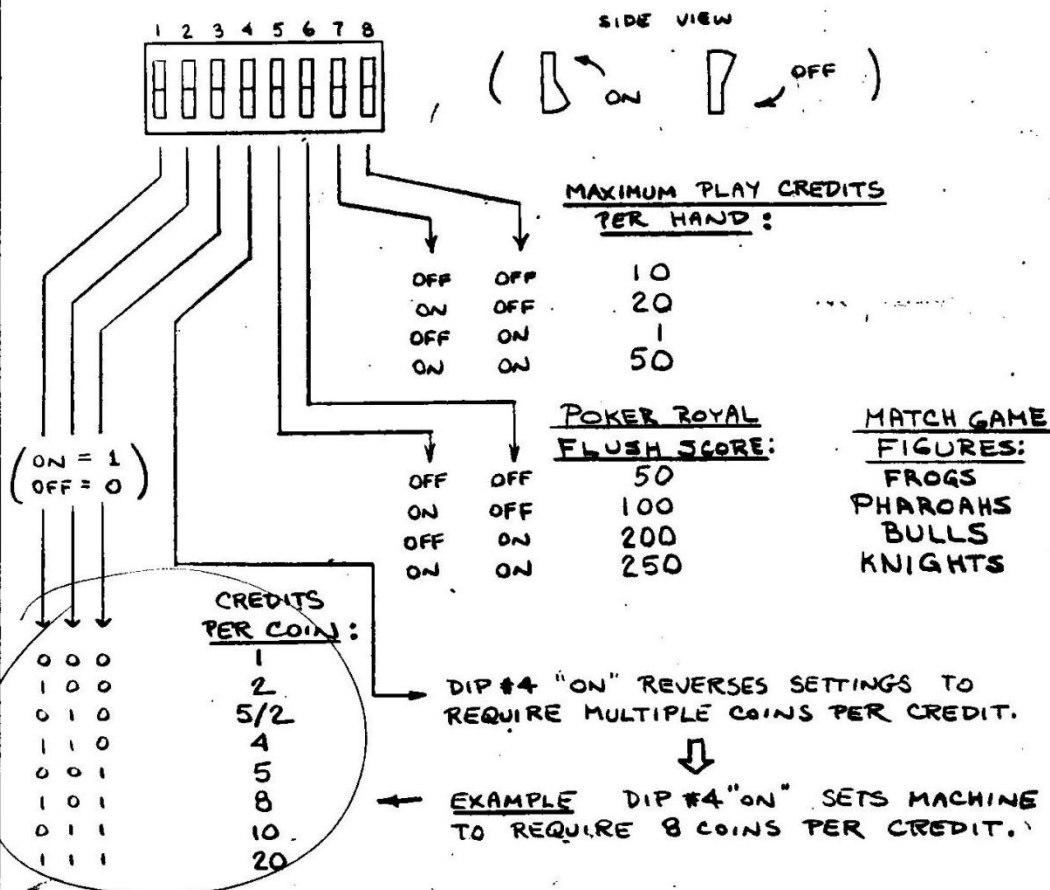 1 2 3 4 5 6 7 8
SIDE VIEW
( ON OFF )
MAXIMUM PLAY CREDITS
PER HAND:
OFF OFF 10
ON OFF 20
OFF ON 1
ON ON 50
POKER ROYAL
FLUSH SCORE:
MATCH GAME
FIGURES:
OFF OFF 50 FROGS
ON OFF 100 PHAROAHS
OFF ON 200 BULLS
ON ON 250 KNIGHTS
(ON = 1
OFF = 0)
CREDITS
PER COIN:
0 0 0 1
1 0 0 2
0 1 0 5/2
1 1 0 4
0 0 1 5
1 0 1 8
0 1 1 10
1 1 1 20
DIP #4 "ON" REVERSES SETTINGS TO
REQUIRE MULTIPLE COINS PER CREDIT.
EXAMPLE DIP #4 "ON" SETS MACHINE
TO REQUIRE 8 COINS PER CREDIT.